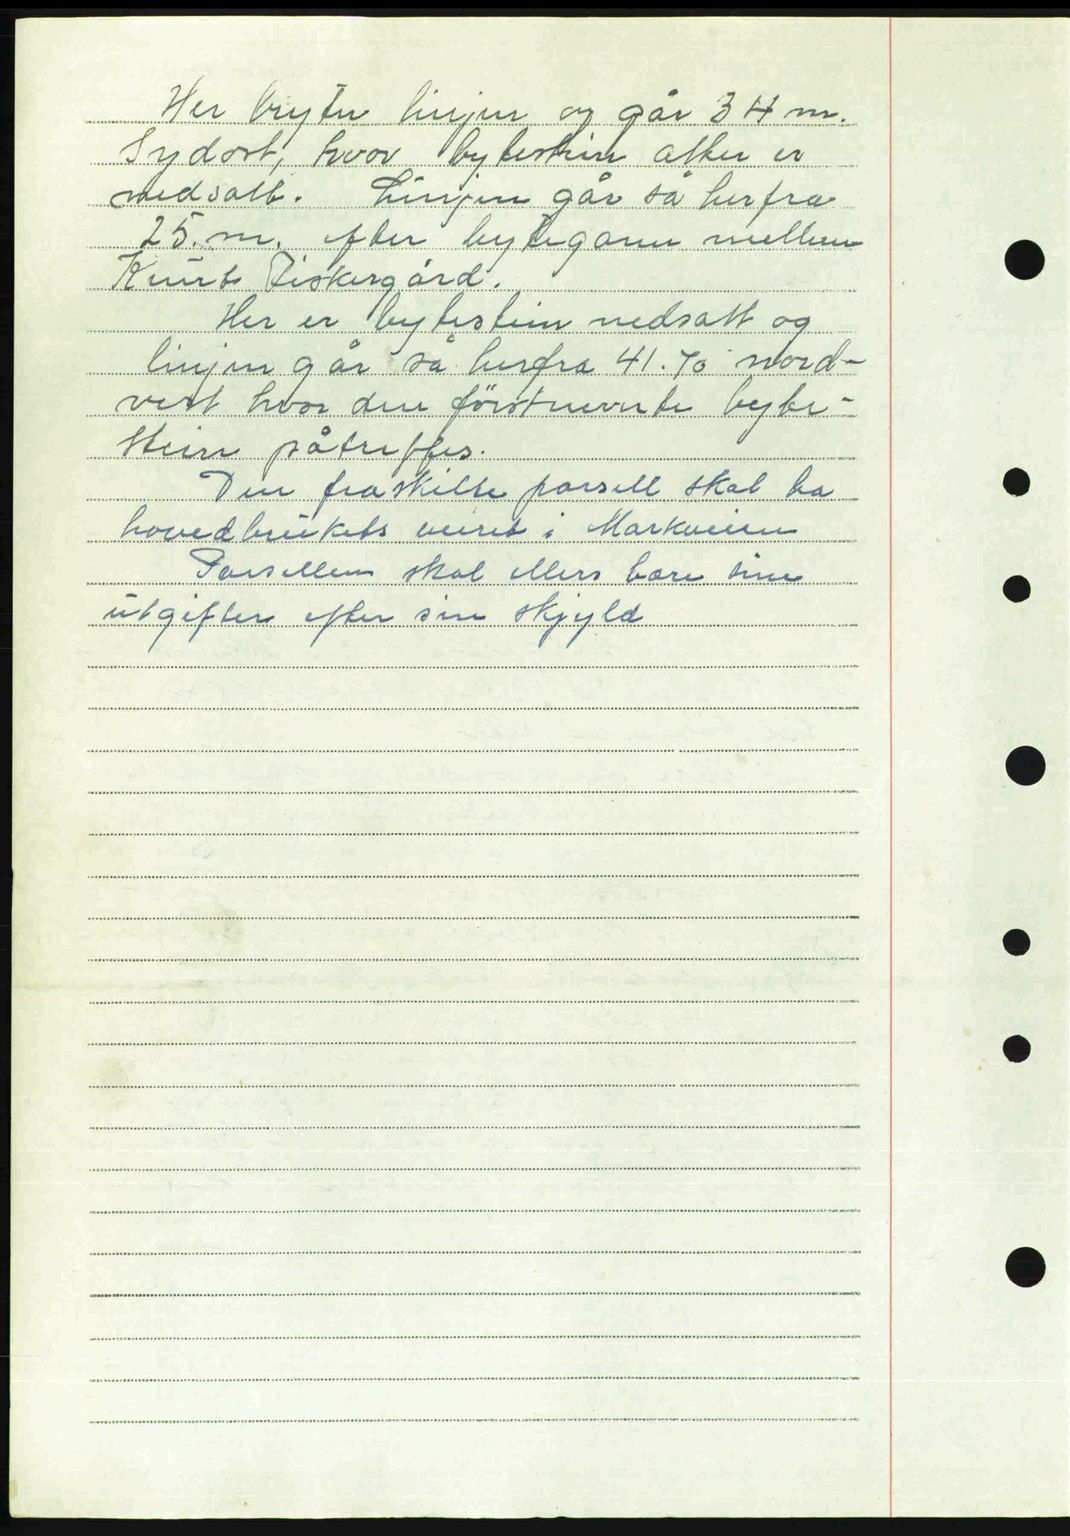 Her bryter linjen og går 34 m.
Sydost, hvor bytestein atter er
nedsatt. Linjen går så herfra
25. m. efter bytegarm mellem
Knuts Fiskergård.
Her er bytestein nedsatt og
linjen går så herfra 41.70 nord-
vest hvor den förstnevnte byte-
stein påtreffes.
Den fraskilte parsell skal ha
hovedbrukets veiret i Markveien
Parsellen skal ellers bære sine
utgifter efter sin skjyld